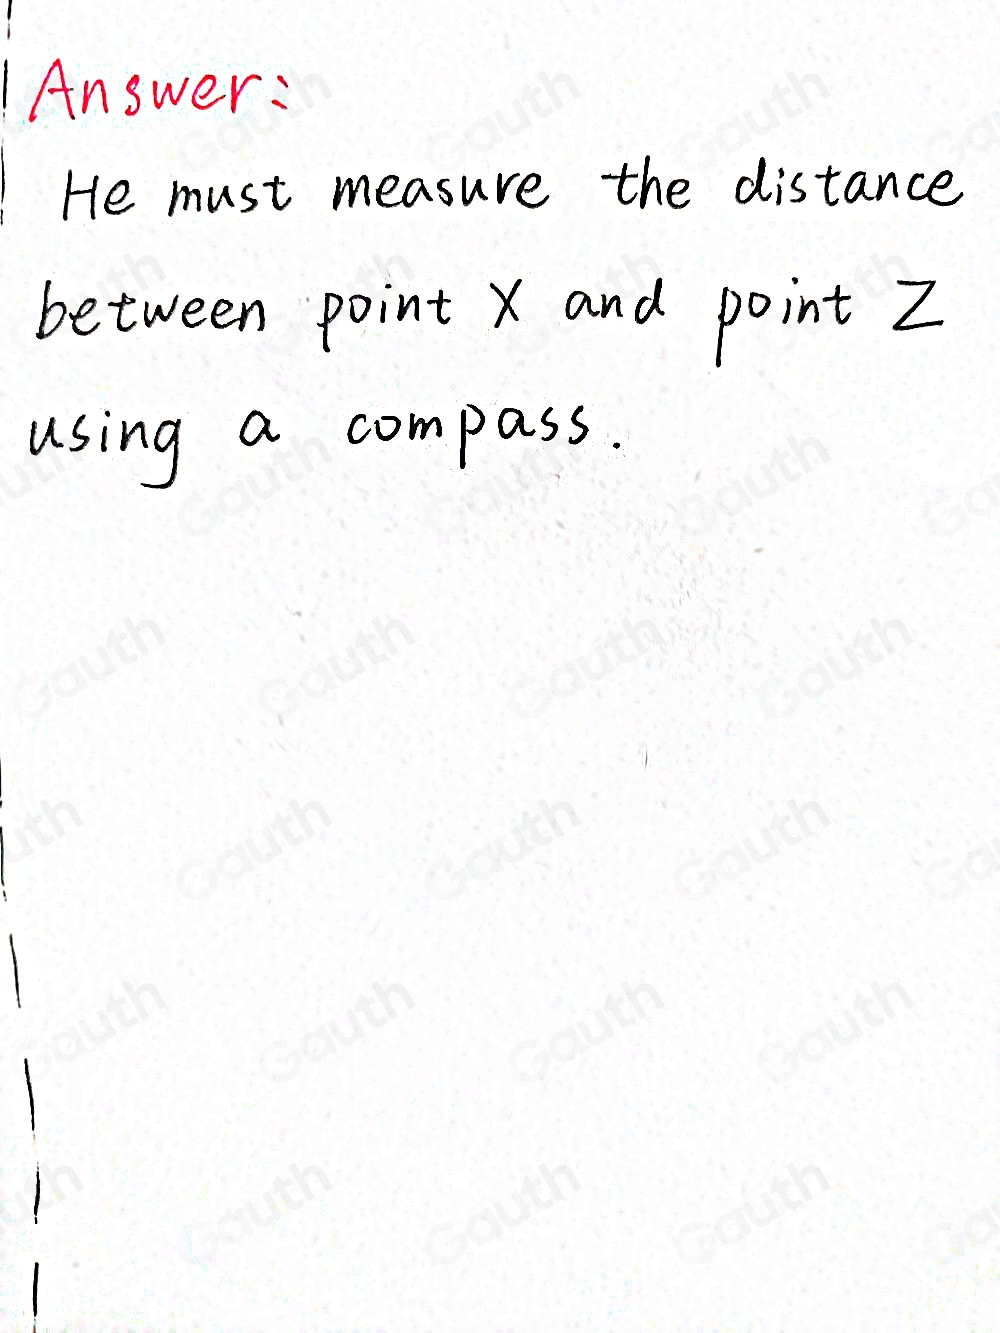 Answer:
He must measure the distance
between point X and point Z
using a compass.